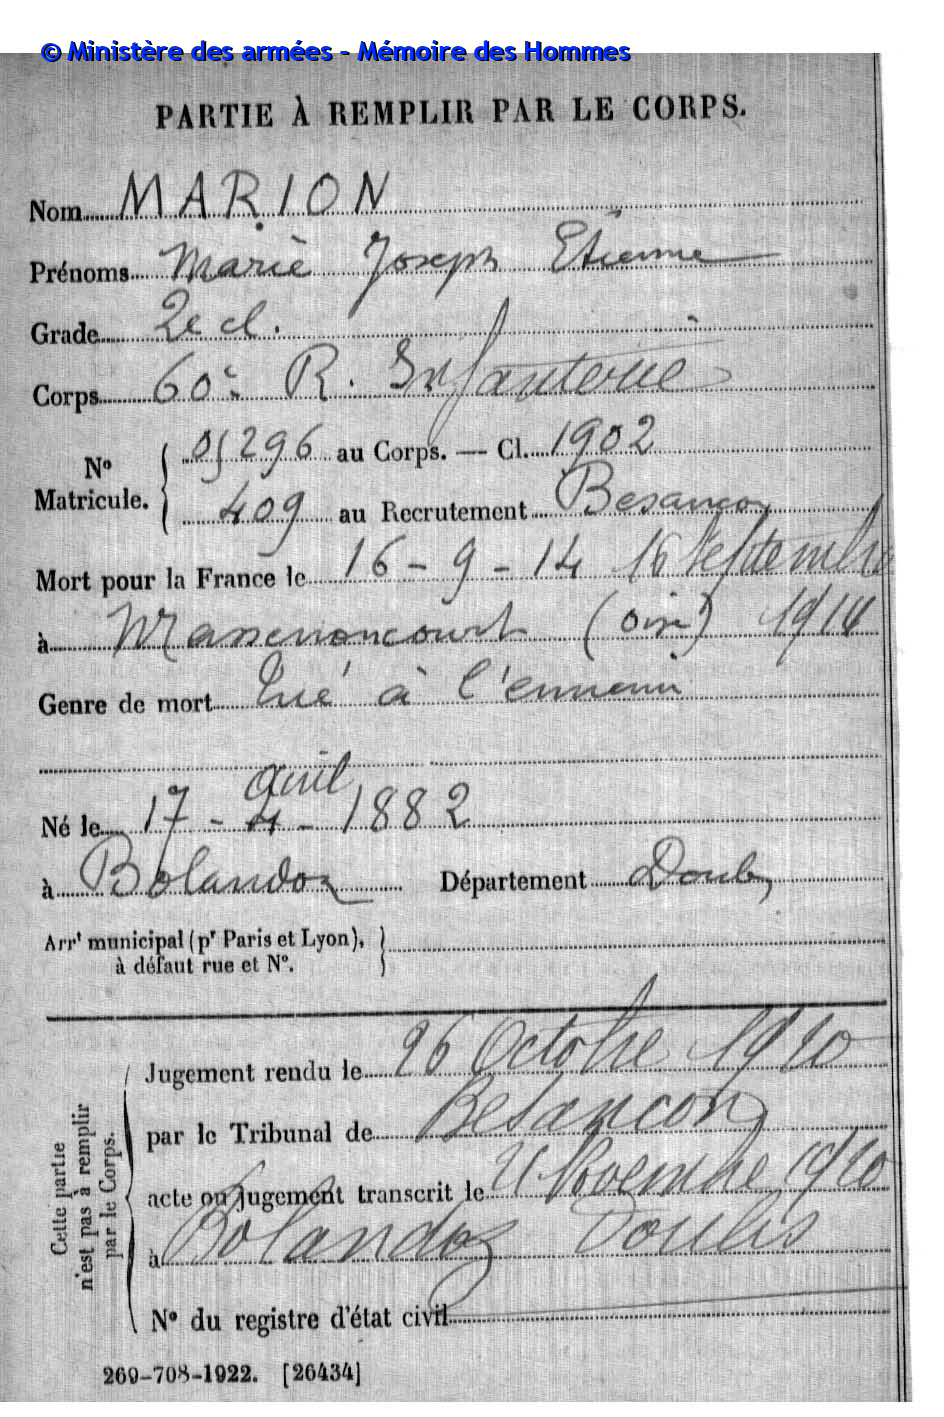 © Ministère des armées - Mémoire des Hommes
PARTIE À REMPLIR PAR LE CORPS.
Nom MARION
Prénoms Marie Joseph Etienne
Grade 2e cl.
Corps 60e R. Infanterie
No Matricule. { 05296 au Corps. — Cl. 1902
409 au Recrutement Besançon
Mort pour la France le 16 - 9 - 14 16 Septembre
à (Oise) 1914
Genre de mort tué à l'ennemi
avril
Né le 17 - 4 - 1882
à Bolandoz Département Doubs
Arrt municipal (pr Paris et Lyon),
à défaut rue et No.
Cette partie n'est pas à remplir par le Corps.
Jugement rendu le 26 Octobre 1920
par le Tribunal de Besançon
acte ou jugement transcrit le Novembre 1920
à Bolandoz Doubs
No du registre d'état civil
269-708-1922. [26434]